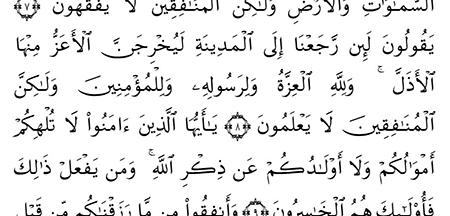 السَّمَٰوَٰتِ وَالْأَرْضِ وَلَٰكِنَّ الْمُنَٰفِقِينَ لَا يَفْقَهُونَ ﴿٧﴾
يَقُولُونَ لَئِن رَّجَعْنَا إِلَى الْمَدِينَةِ لَيُخْرِجَنَّ الْأَعَزُّ مِنْهَا
الْأَذَلَّ ۚ وَلِلَّهِ الْعِزَّةُ وَلِرَسُولِهِۦ وَلِلْمُؤْمِنِينَ وَلَٰكِنَّ
الْمُنَٰفِقِينَ لَا يَعْلَمُونَ ﴿٨﴾ يَٰٓأَيُّهَا الَّذِينَ ءَامَنُوا۟ لَا تُلْهِكُمْ
أَمْوَٰلُكُمْ وَلَآ أَوْلَٰدُكُمْ عَن ذِكْرِ اللَّهِ ۚ وَمَن يَفْعَلْ ذَٰلِكَ
فَأُو۟لَٰٓئِكَ هُمُ الْخَٰسِرُونَ ﴿٩﴾ وَأَنفِقُوا۟ مِن مَّا رَزَقْنَٰكُم مِّن قَبْلِ